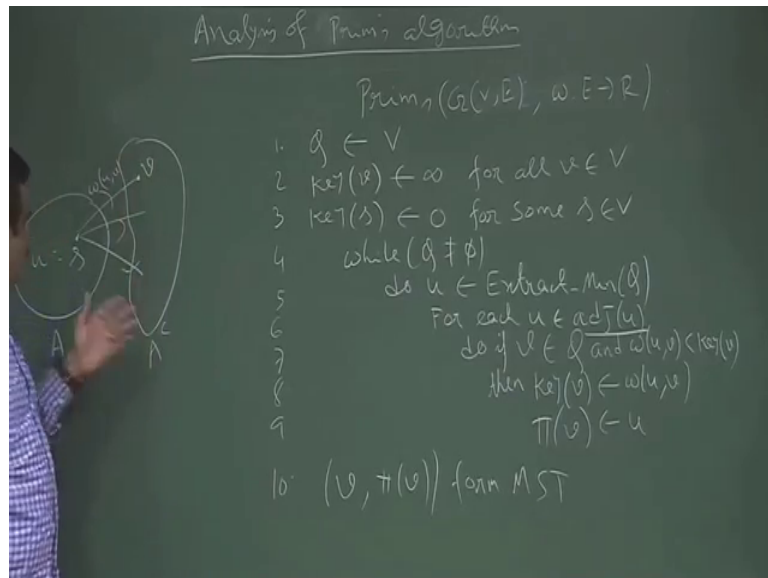 Analysis of Prim's algorithm
Prims(G(V,E), w: E→R)
1. Q ← V
2 key(v) ← ∞ for all v ∈ V
3 key(s) ← 0 for some s ∈ V
4 while (Q ≠ φ)
5 do u ← Extract-Min(Q)
6 For each u ∈ adj(u)
7 do if v ∈ Q and w(u,v) < key(v)
8 then key(v) ← w(u,v)
9 π(v) ← u
10 (v, π(v)) form MST
v
w(u,v)
u = s
A
A^c